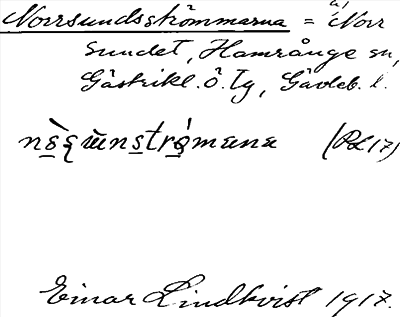 Norrsundsströmmarna = a) Norr
sundet, Hamrånge sn,
Gästrikl. ö. Tg, Gävleb. l.
(RL 17)
Einar Lindkvist 1917.